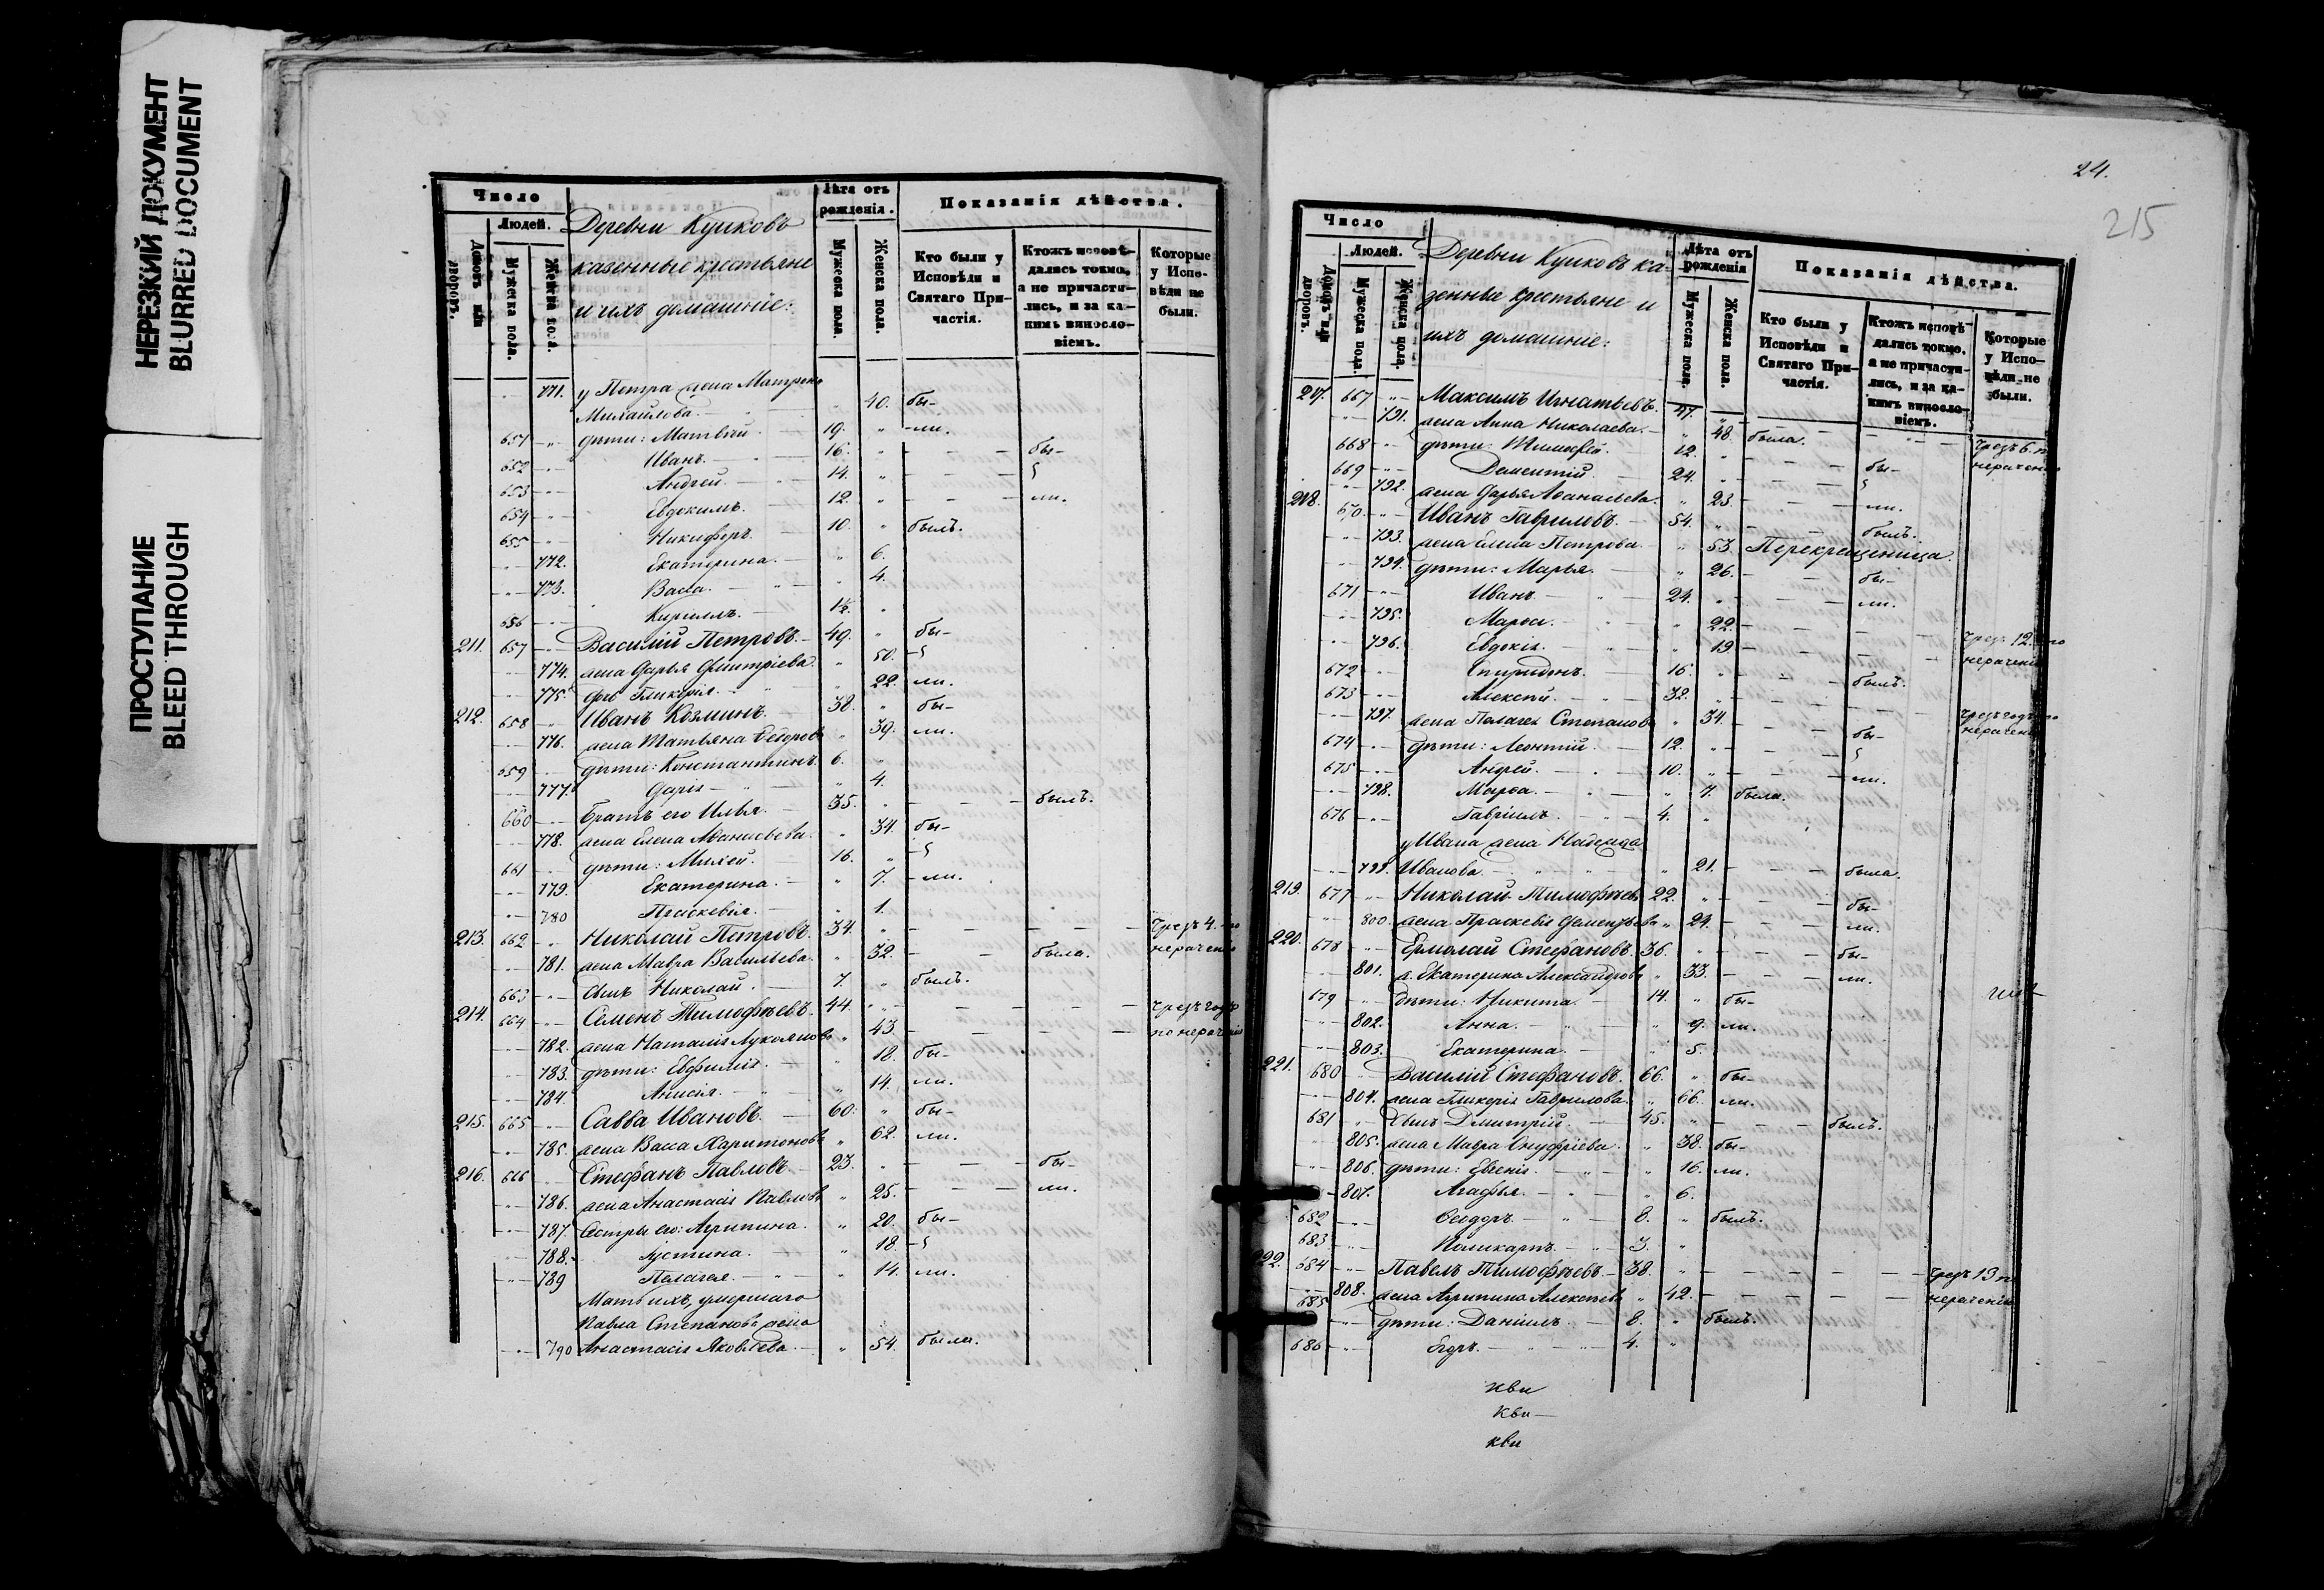 НЕРЕЗКИЙ ДОКУМЕНТ
BLURRED DOCUMENT
ПРОСТУПАНИЕ
BLEED THROUGH
Число
Людей.
Домовъ или дворовъ.
Мужеска пола.
Женска пола.
Деревни Кушковъ
казенные крестьяне
и ихъ домашніе:
Лѣта отъ рожденія.
Мужеска пола.
Женска пола.
Показанія дѣйства.
Кто были у Исповѣди и Святаго Причастія.
Ктожъ исповѣдались токмо, а не причастились, и за какимъ винословіемъ.
Которые у Исповѣди не были.
771. у Петра жена Матрона
Михайлова. 40. бы-
651 дѣти: Матвѣй. 19. -ли.
652 Иванъ. 16. бы-
653 Андрей. 14.
654 Евдокимъ. 12. ли.
655 Никифоръ. 10. былъ.
772. Екатерина. 6.
773. Васса. 4.
656 Кириллъ. 1½.
211. 657 Василій Петровъ. 49. бы-
774. жена Дарья Дмитріева. 50.
775. дочь Гликерія. 22. ли.
212. 658 Иванъ Козминъ. 38. бы-
776. жена Татьяна Ѳедорова 39. ли.
659 дѣти: Константинъ. 6.
777. Дарія 4.
660 братъ его Илья. 35. былъ.
778. жена Елена Аѳанасьева. 34. бы-
661 дѣти: Михей. 16.
779. Екатерина. 7. ли.
780 Праскевія. 1.
213. 662 Николай Петровъ. 34. Чрезъ 4. по
781. жена Мавра Васильева. 32. была. нерачению
663 сынъ Николай. 7. былъ.
214. 664 Семенъ Тимофѣевъ. 44. Чрезъ годъ
782. жена Наталія Лукоянова 43. по нерачению
783. дѣти: Евфимія. 18. бы-
784. Анисія. 14. ли.
215. 665 Савва Ивановъ. 60. бы-
785. жена Васса Харитонова 62. ли.
216. 666 Стефанъ Павловъ. 23. бы-
786. жена Анастасія Павлова 25. ли.
787. Сестры его: Агрипина. 20. бы-
788. Іустина. 18.
789 Палагея. 14. ли.
Мать ихъ, умершаго
Павла Степанова жена
790 Анастасія Яковлева. 54. была.
24.
215
Число
Людей.
Домовъ или дворовъ.
Мужеска пола.
Женска пола.
Деревни Кушковъ ка-
зенные крестьяне и
ихъ домашніе:
Лѣта отъ рожденія
Мужеска пола.
Женска пола.
Показанія дѣйства.
Кто были у Исповѣди и Святаго Причастія.
Ктожъ исповѣдались токмо, а не причастились, и за какимъ винословіемъ.
Которые у Исповѣди не были.
217. 667 Максимъ Игнатьевъ. 47. Чрезъ 6. по
791. жена Анна Николаева. 48. была. нерачению
668 дѣти: Тимофей. 12. бы-
669 Дементій. 24.
792. жена Дарья Аѳанасьева. 23. ли.
218. 670 Иванъ Гавриловъ. 54. былъ.
793. жена Елена Петрова. 53. Перекрещеница.
794. дѣти: Марья. 26. бы-
671 Иванъ. 24. ли.
795. Марѳа. 22. Чрезъ 12. по
796. Евдокія. 19. нерачению
672 Спиридонъ. 16. былъ.
673 Алексѣй. 32. Чрезъ годъ по
797. жена Палагея Степанова 34. нерачению
674 дѣти: Леонтій. 12. бы-
675 Андрей. 10. ли.
798. Марѳа. 7. была.
676 Гавріилъ. 4.
у Ивана жена Надежда
799. Иванова. 21. была.
219. 677 Николай Тимофѣевъ 22. бы-
800. жена Праскевія Дементьева 24. ли.
220. 678 Ермолай Стефановъ. 36. бы-
801. ж. Екатерина Александрова 33. ли.
679 дѣти: Никита. 14. бы-
802. Анна. 9. ли.
803. Екатерина. 5.
221. 680 Василій Стефановъ. 66. бы-
804. жена Гликерія Гаврилова. 66. ли.
681 Сынъ Дмитрій. 45. былъ.
805. жена Мавра Онуфріева. 38. бы-
806. дѣти: Евгенія. 16. ли.
807. Агафья. 6.
682 Ѳеодоръ. 8. былъ.
683 Поликарпъ. 3.
222. 684 Павелъ Тимофѣевъ. 38. Чрезъ 13 по
808. жена Агрипина Алексѣева 42. нерачению
685 дѣти: Даніилъ. 8. былъ.
686 Егоръ. 4.